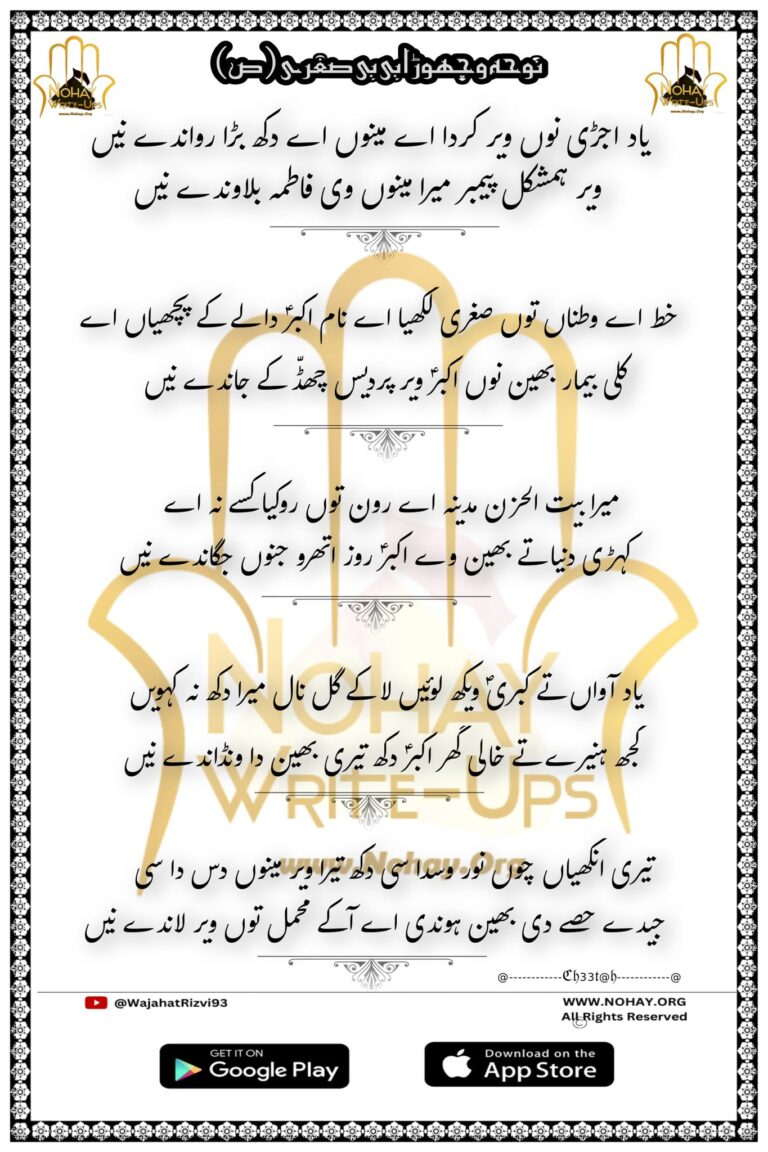 نوحہ وچھوڑا بی بی صغریٰ (ص)
NOHAY
WRITE-UPS
www.Nohay.Org
NOHAY
WRITE-UPS
www.Nohay.Org
یاد اجڑی نوں ویر کردا اے مینوں اے دکھ بڑا رواندے نیں
ویر ہمشکل پیمبر میرا مینوں وی فاطمہ بلاوندے نیں
خط اے وطناں توں صغری لکھیا اے نام اکبرؑ دالے کے پچھیاں اے
کلی بیمار بھین نوں اکبرؑ ویر پردیس چھڈّ کے جاندے نیں
میرا بیت الحزن مدینہ اے رون توں روکیا کسے نہ اے
کہڑی دنیا تے بھین وے اکبرؑ روز اتھرو جنوں جگاندے نیں
یاد آواں تے کبریؑ ویکھ لوئیں لا کے گل نال میرا دکھ نہ کہویں
NOHAY
کجھ ہنیرے تے خالی گھر اکبرؑ دکھ تیری بھین دا ونڈاندے نیں
WRITE-UPS
تیری انکھیاں چوں نور وسدا سی دکھ تیرا ویر مینوں دس دا سی
www.Nohay.Org
جیدے حصے دی بھین ہوندی اے آ کے محمل توں ویر لاندے نیں
@------------Ch33t@h-----------@
@WajahatRizvi93
WWW.NOHAY.ORG
All Rights Reserved
©
GET IT ON
Google Play
Download on the
App Store